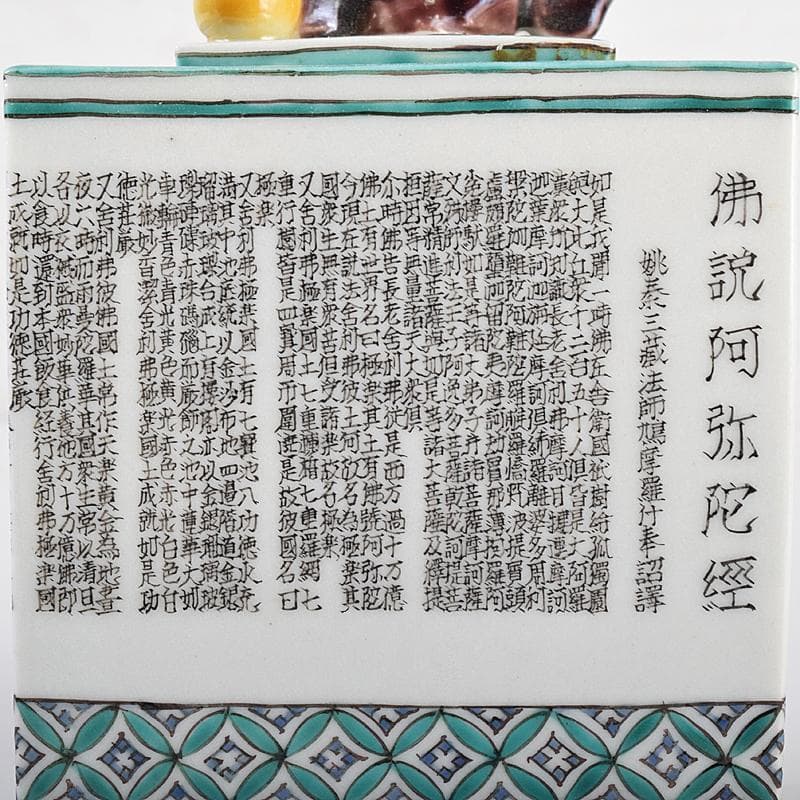 佛說阿弥陀經
姚秦三藏法師鳩摩羅什奉詔譯
如是我聞一時佛在舍衛國祇樹給孤獨園
與大比丘衆千二百五十人俱皆是大阿羅
漢衆所知識長老舍利弗摩訶目揵連摩訶
迦葉摩訶迦旃延摩訶俱絺羅離婆多周利
槃陀伽難陀阿難陀羅睺羅憍梵波提賓頭
盧頗羅墮迦留陀夷摩訶劫賓那薄拘羅阿
㝹樓馱如是等諸大弟子并諸菩薩摩訶薩
文殊師利法王子阿逸多菩薩乾陀訶提菩
薩常精進菩薩與如是等諸大菩薩及釋提
桓因等無量諸天大衆俱
尓時佛告長老舍利弗從是西方過十万億
佛土有世界名曰極楽其土有佛號阿弥陀
今現在説法舍利弗彼土何故名為極楽其
國衆生無有衆苦但受諸楽故名極楽
又舍利弗極楽國土七重欄楯七重羅網七
重行樹皆是四寳周帀圍遶是故彼國名曰
極楽
又舍利弗極楽國土有七寳池八功徳水充
満其中池底純以金沙布地四邊階道金銀
瑠璃玻瓈合成上有樓閣亦以金銀瑠璃玻
瓈硨磲赤珠碼碯而厳飾之池中蓮華大如
車輪青色青光黄色黄光赤色赤光白色白
光微妙香潔舍利弗極楽國土成就如是功
徳荘厳
又舍利弗彼佛國土常作天楽黄金為地晝
夜六時而雨曼陀羅華其國衆生常以清旦
各以衣裓盛衆妙華供養他方十万億佛即
以食時還到本國飯食経行舍利弗極楽國
土成就如是功徳荘厳